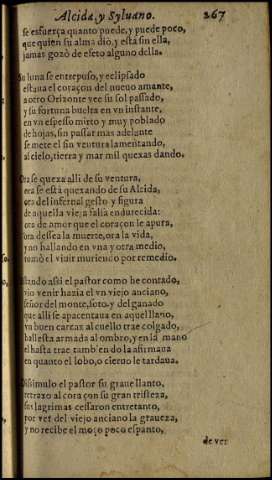 Alcida, y Syluano. 267
se esfuerça quanto puede, y puede poco,
que quien su alma diò, y està sin ella,
jamas gozò de efeto alguno della.
Su luna se entrepuso, y eclipsado
estaua el coraçon del nueuo amante,
a otro Orizonte vee su sol passado,
y su fortuna buelta en vn instante,
en vn espesso mirto y muy poblado
de hojas, sin passar mas adelante
se mete el sin ventura lamentando,
al cielo, tierra y mar mil quexas dando.
Ora se quexa alli de su ventura,
ora se està quexando de su Alcida,
ora del infernal gesto y figura
de aquella vieja falsa endurecida:
ora de amor que el coraçon le apura,
ora dessea la muerte, ora la vida,
y no hallando en vna y otra medio,
tomò el viuir muriendo por remedio.
Estando assi el pastor como he contado,
vio venir hazia el vn viejo anciano,
señor del monte, soto, y del ganado
que alli se apacentaua en aquel llano,
vn buen carcax al cuello trae colgado,
ballesta armada al ombro, y en la mano
el hasta trae tambien do la afirmaua
en quanto el lobo, o cieruo le tardaua.
Dissimulo el pastor su graue llanto,
retraxo al coraçon su gran tristeza,
sus lagrimas cessaron entretanto,
por ver del viejo anciano la graueza,
y no recibe el moço poco espanto,
de ver